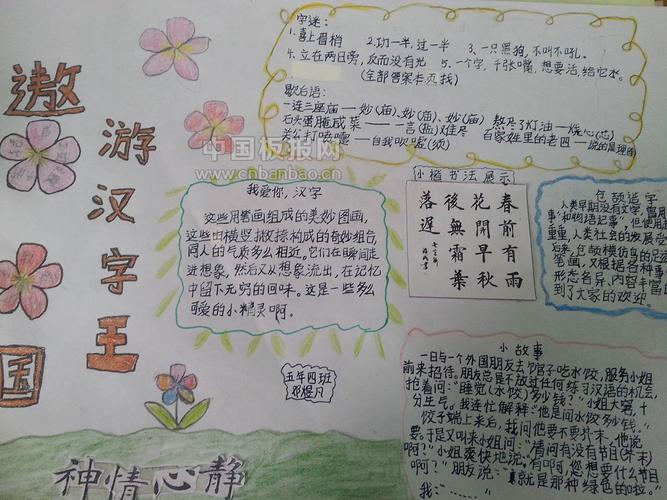 遨游汉字王国
字迷:
1.喜上眉梢 2.功一半,过一半 3、一只黑狗,不叫不吼。
4.立在两日旁,反而没有光 5.一个字,千张嘴,想要活,给它水。
(全部答案本页找)
歇后语:
一连三座庙——妙(庙)、妙(庙)、妙(庙) 熬尽了灯油——烧心(芯)
石头蛋腌咸菜——一言(盐)难尽 百家姓里的老四——说的是理
关公打喷嚏——自我吹嘘(须)
中国板报网
www.cnbanbao.cn
我爱你,汉字
这些用笔画组成的美妙图画,
这些由横竖撇捺构成的奇妙组合,
同人的气质多么相近。它们在瞬间走
进想象,然后又从想象流出,在记忆
中留下无穷的回味。这是一些多么
可爱的小精灵啊。
小楷书法展示
春前有雨
花開早秋
後無霜葉
落遲
仓颉造字
人类早期没有文字,曾用
事"和物语记事",但使用
重重,人类社会的发展
后来,仓颉模仿鸟的足迹
笔画,又根据各种事
形态各异、内容丰富的
到了大家的欢迎
五年四班
小故事
一日与一个外国朋友去饺子馆吃水饺,服务小姐
前来招待。朋友总是不放过任何练习汉语的机会,
抢着问:"睡觉(水饺)多少钱?"小姐大窘,十
分生气。我连忙解释:"他是问水饺多少钱。"
饺子端上来后,我问他要不要芥末,他说
要。于是又叫来小姐问:"请问有没有节目(芥末)
啊?"小姐爽快地说:"有啊,您想要什么节目
啊?"朋友说:"就是那种绿色的啦。"
我:……
神情心静